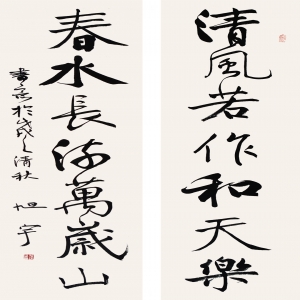 清風若作和天樂
春水長流萬歲山
書於戊戌之清秋 旭宇